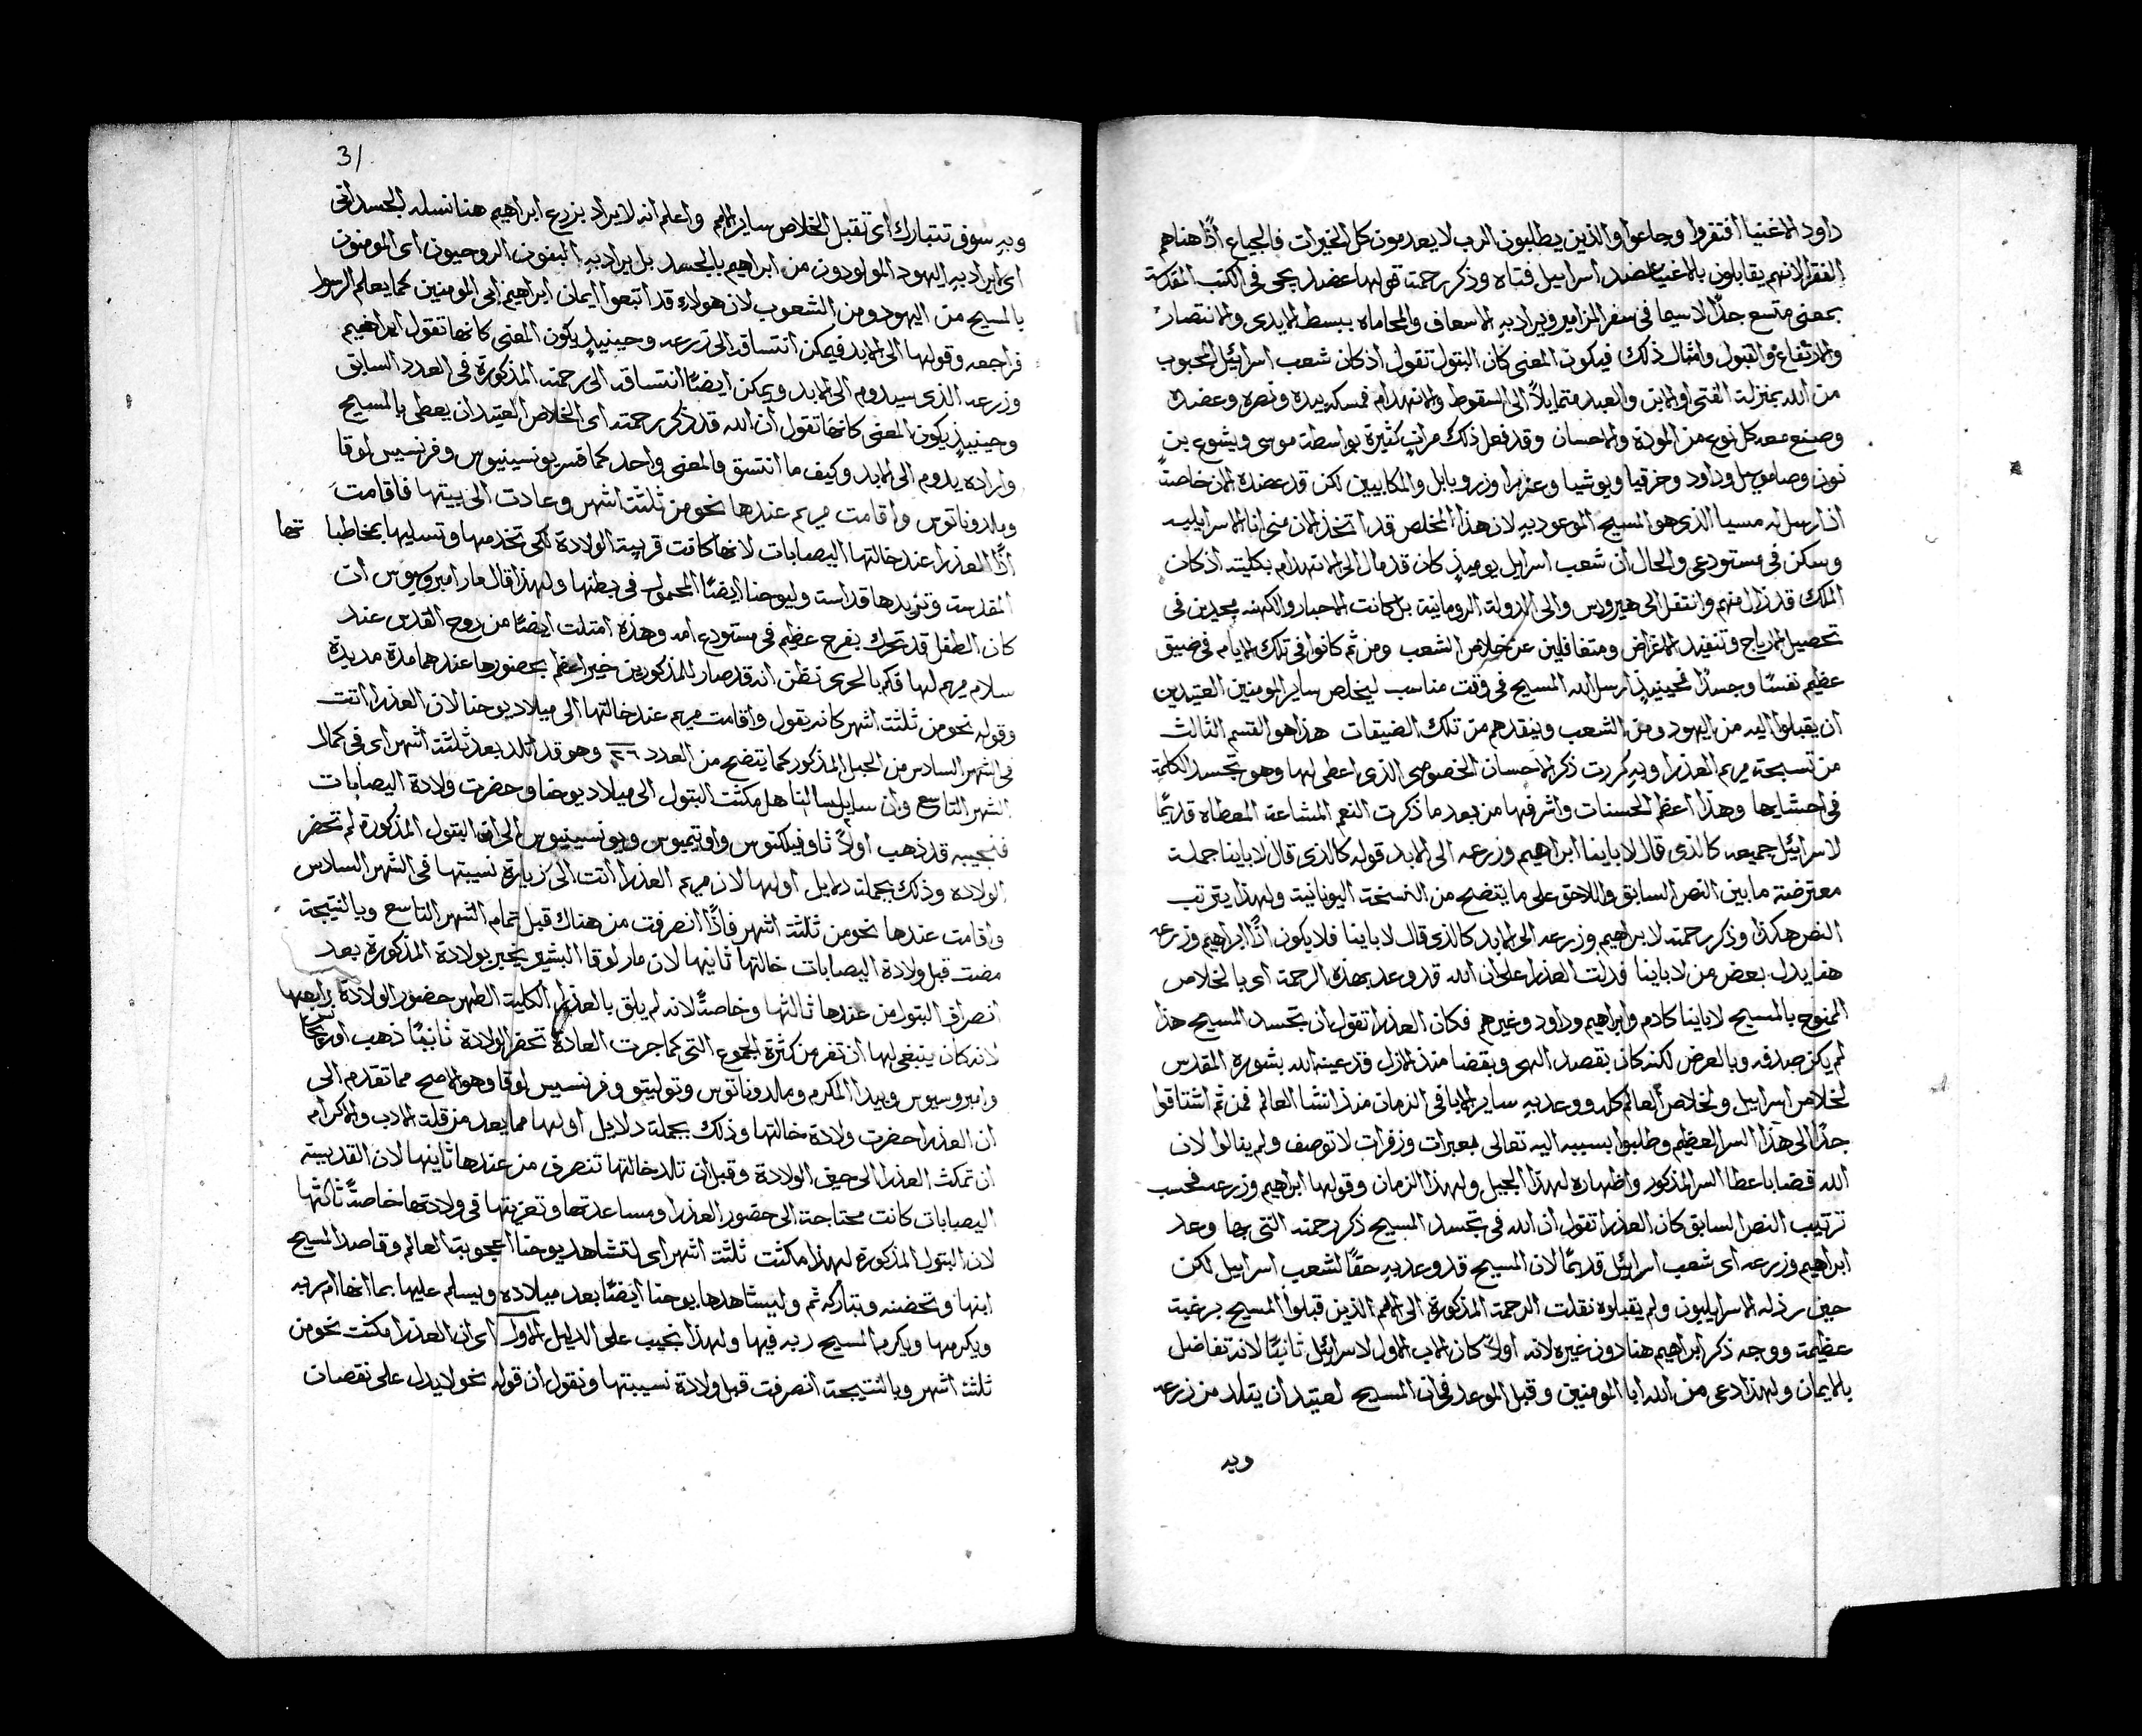 داود الاغنيا افتقروا وجاعوا والذين يطلبون الرب لا يعدمون كل الخيرات فالجياع اذًا هناهم
الفقرا لانهم يقابلون بالاغنيا عضد اسراييل فتاه وذكر رحمته قولها عضد يجى فى الكتب المقدسة
بمعنى متسع جدًا لاسيما فى سفر المزامير ويراد به الاسعاف والمحاماه ببسط الايدى والانتصار
والارتفاع والقبول وامثال ذلك فيكون المعنى كان البتول تقول اذ كان شعب اسراييل المحبوب
من الله بمنزلة الفتى او الابن والعبد متمايلاً الى السقوط والانهدام فمسكه بيده ونصره وعضده
وصنع معه كل نوع من المودة والاحسان وقد فعل ذلك مرات كثيرة بواسطة موسى ويشوع بن
نون وصامويل وداود وحزقيا ويوشيا وعزرا وزروبابل والمكابيين لكن قد عضده الان خاصتًا
اذ ارسل له مسيا الذى هو المسيح الموعود به لان هذا المخلص قد اتخذ الان منى انا الاسراييليه
وسكن فى مستودعى والحال ان شعب اسراييل يوميذٍ كان قد مال الى الانهدام بكليته اذ كان
الملك قد زال منهم وانتقل الى هيرودس والى الدولة الرومانية بل كانت الاحبار والكهنه مجدين فى
تحصيل الارباح وتنفيد الاغراض ومتغافلين عن خلاص الشعب ومن ثم كانوا فى تلك الايام فى ضيق
عظيم نفسًا وجسدًا فحينيذٍ ارسل الله المسيح فى وقت مناسب ليخلص ساير المومنين العتيدين
ان يقبلوا اليه من اليهود ومن الشعب وينقدهم من تلك الضيقات هذا هو القسم الثالث
من تسبحة مريم العذرا وبه كررت ذكر الاحسان الخصوصى الذى اعطى لها وهو تجسد الكلمة
فى احشايها وهذا اعظم الحسنات واشرفها من بعد ما ذكرت النعم المشاعة المعطاه قديمًا
لاسراييل جميعه كالذى قال لاباينا ابراهيم وزرعه الى الابد قوله كالذى قال لاباينا جملة
معترضة ما بين النص السابق واللاحق على ما يتضح من النسخة اليونانية ولهذا يترتب
النص هكذا وذكر رحمته لابراهيم وزرعه الى الابد كالذى قال لاباينا فلا يكون اذًا ابراهيم وزرعه
هنا بدل بعض من لاباينا فدلت العذرا على ان الله قد وعد بهذه الرحمة اى بالخلاص
الممنوح بالمسيح لاباينا كادم وابراهيم وداود وغيرهم فكان العذرا تقول ان تجسد المسيح هذا
لم يكن صدفه وبالعرض لكنه كان بقصد الهى وبقضا منذ الازل قد عينه الله بشوره المقدس
لخلاص اسراييل ولخلاص العالم كله ووعد به ساير الابا فى الزمان منذ انشا العالم فمن ثم اشتاقوا
جدًا الى هذا السر العظيم وطلبوا بسببه اليه تعالى بعبرات وزفرات لا توصف ولم ينالوا لان
الله قضا باعطا السر المذكور واظهاره لهذا الجيل ولهذا الزمان وقولها ابراهيم وزرعه فحسب
ترتيب النص السابق كان العذرا تقول ان الله فى تجسد المسيح ذكر رحمته التى بها وعد
ابراهيم وزرعه اى شعب اسراييل قديمًا لان المسيح قد وعد به حقًا لشعب اسراييل لكن
حين رذله الاسراييليون ولم يقبلوه نقلت الرحمة المذكورة الى الامم الذين قبلوا المسيح برغبة
عظيمة ووجه ذكر ابراهيم هنا دون غيره لانه اولاً كان الاب الاول لاسراييل ثانيًا لانه تفاضل
بالايمان ولهذا دعى من الله ابا المومنين وقبل الموعد فى ان المسيح لعتيد ان يتلد من زرعه
وبه
31
وبه سوف تتبارك اى تقبل الخلاص ساير الامم واعلم انه لا يراد بزرع ابراهيم هنا نسله الجسدانى
اى لا يراد به اليهود المولودون من ابراهيم بالجسد بل يراد به البنون الروحيون اى المومنون
بالمسيح من اليهود ومن الشعوب لان هولاء قد اتبعوا ايمان ابراهيم ابى المومنين كما يعلم الرسول
فراجعه وقولها الى الابد فيمكن انتساقه الى زرعه وحينيذٍ يكون المعنى كانها تقول ابراهيم
وزرعه الذى سيدوم الى الابد ويمكن ايضًا انتساقه الى رحمته المذكورة فى العدد السابق
وحينيذٍ يكون المعنى كانها تقول ان الله قد ذكر رحمته اى الخلاص العتيد ان يعطى بالمسيح
واراده يدوم الى الابد وكيف ما انتسق فالمعنى واحد كما فسر يونسينيوس وفرنسيس لوقا
ومالدوناتوس واقامت مريم عندها نحو من ثلثة اشهر وعادت الى بيتها فاقامت
اذًا العذرا عند خالتها اليصابات لانها كانت قريبة الولادة لكى تخدمها وتسليها بمخاطباتها
المقدسة وتزيدها قداسة وليوحنا ايضًا المحمول فى بطنها ولهذا قال مار امبروسيوس ان
كان الطفل قد تحرك بفرح عظيم فى مستودع امه وهذه امتلت ايضًا من روح القدس عند
سلام مريم لها فكم بالحرى نظن انه قد صار للمذكورين خير اعظم بحضورها عندهما مدة مديدة
وقوله نحو من ثلثة اشهر كانه يقول واقامت مريم عند خالتها الى ميلاد يوحنا لان العذرا اتت
فى الشهر السادس من الحبل المذكور كما يتضح من العدد ٢٦ وهو قد اتلد بعد ثلثة اشهر اى فى كمال
الشهر التاسع وان سايل يسالنا هل مكثت البتول الى ميلاد يوحنا وحضرت ولادة اليصابات
فنجيبه قد ذهب اولاً ثاوفيلكتوس واوتيميوس ويونسينيوس الى ان البتول المذكورة لم تحضر
الولادة وذلك بجملة دلايل اولها لان مريم العذرا اتت الى زيارة نسيبتها فى الشهر السادس
واقامت عندها نحو من ثلثة اشهر فاذًا انصرفت من هناك قبل تمام الشهر التاسع وبالنتيجة
مضت قبل ولادة اليصابات خالتها ثانيها لان مار لوقا البشير يخبر بولادة المذكورة بعد
انصراف البتول من عندها ثالثها وخاصتًا لانه لم يلق بالعذرا الكلية الطهر حضور الولادة رابعها
لانه كان ينبغى لها ان تفر من كثرة الجموع التى كما جرت العادة تحضر الولادة ثانيًا ذهب اوريجانس
وامبروسيوس وبيدا المكرم ومالدوناتوس وتوليتو وفرنسيس لوقا وهو الاصح مما تقدم الى
ان العذرا حضرت ولادة خالتها وذلك بجملة دلايل اولها مما يعد من قلة الادب والاكرام
ان تمكث العذرا الى حين الولادة وقبل ان تلد خالتها تنصرف من عندها ثانيها لان القديسة
اليصابات كانت محتاجة الى حضور العذرا ومساعدتها وتعزيتها فى ولادتها خاصتًا ثالثها
لان البتول المذكورة لهذا مكثت ثلثة اشهر اى لتشاهد يوحنا اعجوبة العالم وقاصد المسيح
ابنها وتحضنه وتباركه ثم وليشاهدها يوحنا ايضًا بعد ميلاده ويسلم عليها بما انها ام ربه
ويكرمها ويكرم المسيح ربه فيها ولهذا نجيب على الدليل الاول اى ان العذرا مكثت نحو من
ثلثة اشهر وبالنتيجة انصرفت قبل ولادة نسيبتها ونقول ان قوله نحو لا يدل على نقصات